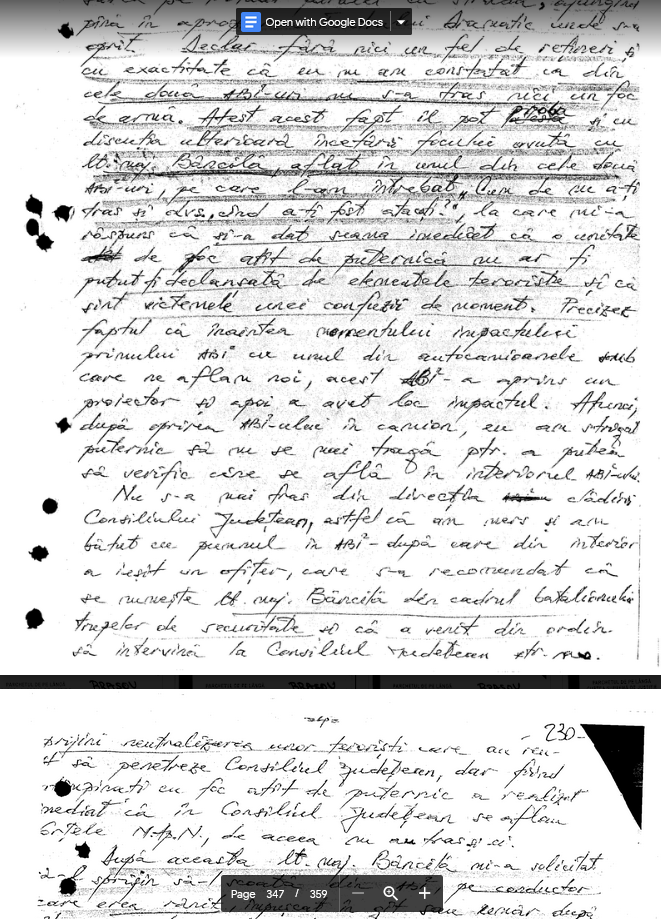 până în apropierea Dramatic unde s-a
Open with Google Docs
oprit. Declar fără nici un fel de rețineri și
cu exactitate că eu nu am constatat ca din
cele două ABI-uri nu s-a tras nici un foc
de armă. Atest acest fapt îl pot proba și cu
discuția ulterioară încetării focului avută cu
lt. maj. Bărcilă, aflat în unul din cele două
ABI-uri, pe care l-am întrebat „Cum de nu ați
tras și dvs. cînd ați fost atacați?", la care mi-a
răspuns că și-a dat seama imediat că o unitate
de foc atît de puternică nu ar fi
putut fi declanșată de elementele teroriste și că
sînt victemele unei confuzii de moment. Precizez
faptul că înaintea momentului impactului
primului ABI cu unul din autocamioanele sub
care ne aflam noi, acest ABI-a aprins un
proiector și apoi a avut loc impactul. Atunci,
după oprirea ABI-ului în camion, eu am strigat
puternic să nu se mai tragă ptr. a putea
să verific cine se află în interiorul ABI-ului.
Nu s-a mai tras din direcția clădirii
Consiliului Județean, astfel că am mers și am
bătut cu pumnul în ABI-după care din interior
a ieșit un ofițer, care s-a recomandat că
se numește lt. maj. Bărcilă din cadrul batalionului
trupelor de securitate și că a venit din ordin
să intervină la Consiliul Județean ptr.
-230-
sprijini neutralizarea unor teroriști care au reu-
șit să penetreze Consiliul Județean, dar fiind
întîmpinați cu foc atît de puternic a realizat
imediat că în Consiliul Județean se aflau
forțele M.Ap.N., de aceea nu au tras și ei.
După aceasta lt. maj. Bărcilă mi-a solicitat
să-l sprijin să-l scoată din ABI pe conductor
Page 347 / 359
care era rănit, împușcat în gît sau umăr după